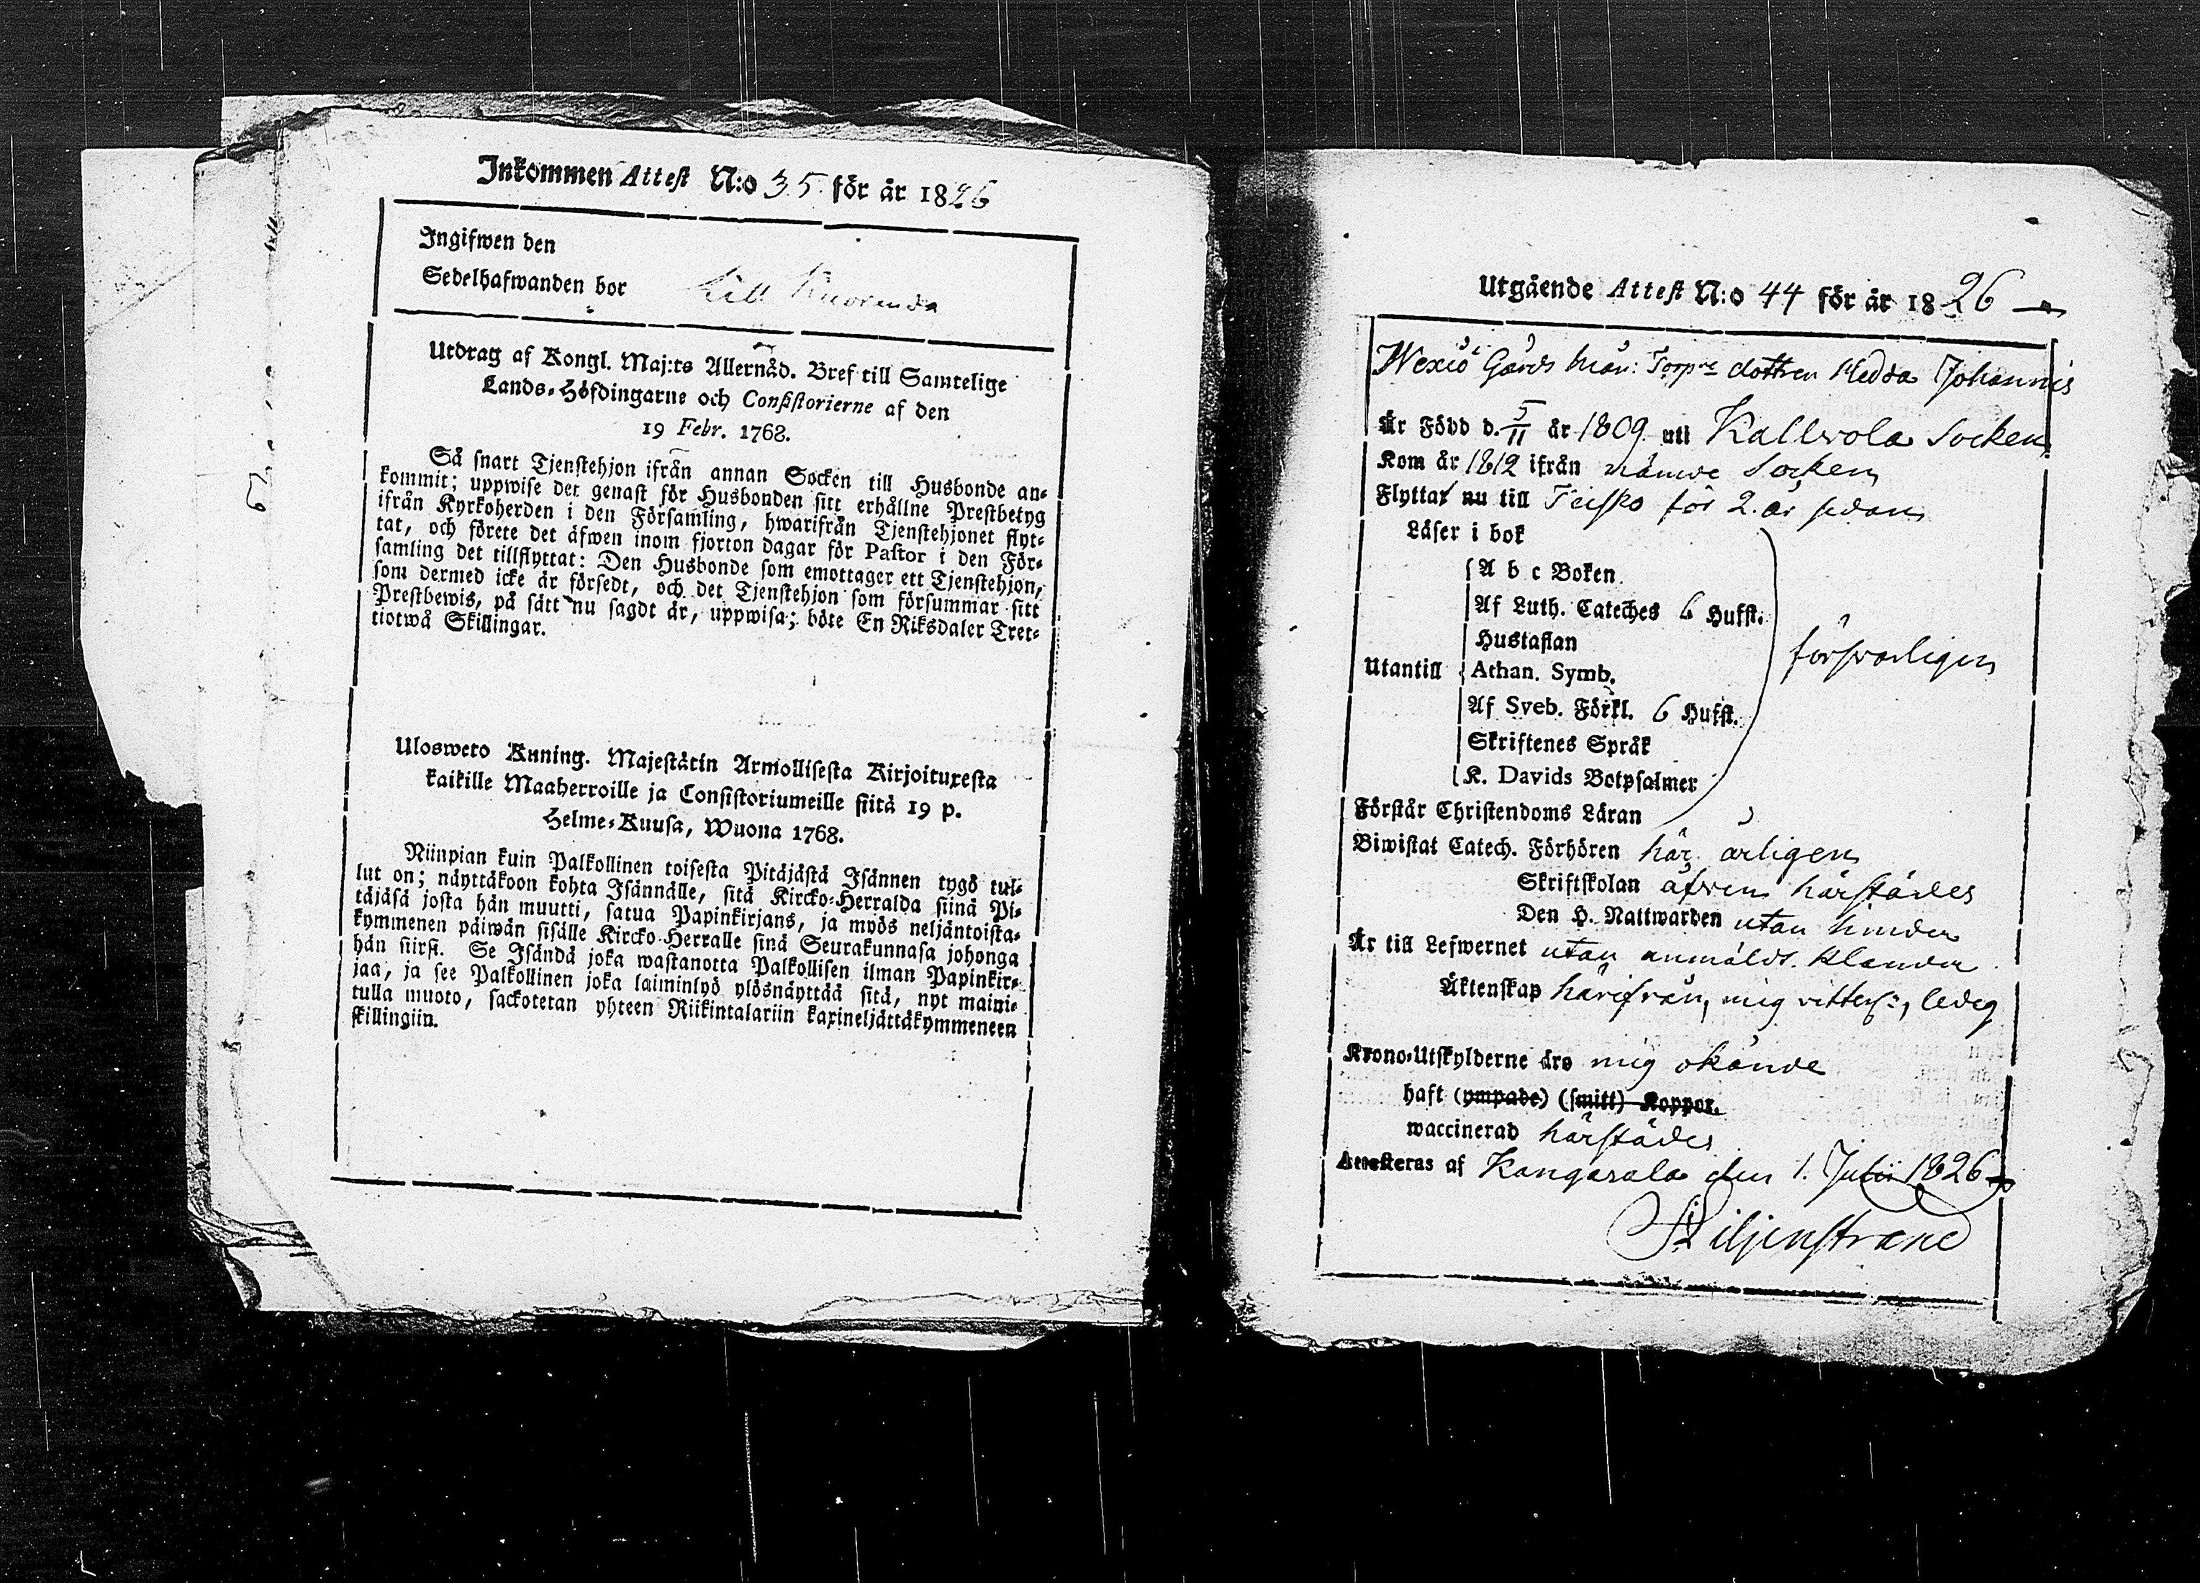 Inkommen Attest N:o 35 för år 1826
Ingifwen den
Sedelhafwanden bor Lill
Utdrag af Kongl. Maj:ts Allernåd. Bref till Samtelige
Lands-Höfdingarne och Consistorierne af den
19 Febr. 1768.
Så snart Tjenstehjon ifrån annan Socken till Husbonde an-
kommit; uppwise det genast för Husbonden sitt erhållne Prestbetyg
ifrån Kyrkoherden i den Församling, hwarifrån Tjenstehjonet flyt-
tat, och förete det äfwen inom fjorton dagar för Pastor i den För-
samling det tillflyttat: Den Husbonde som emottager ett Tjenstehjon,
som dermed icke är försedt, och det Tjenstehjon som försummar sitt
Prestbewis, på sätt nu sagdt är, uppwisa; böte En Riksdaler Tret-
tiotwå Skillingar.
Ulosweto Kuning. Majestätin Armollisesta Kirjoituxesta
kaikille Maaherroille ja Consistoriumeille siitä 19 p.
Helme-Kuusa, Wuona 1768.
Niinpian kuin Palkollinen toisesta Pitäjästä Isännen tygö tul-
lut on; näyttäkoon kohta Isännälle, sitä Kircko-Herralda siinä Pi-
täjäsä josta hän muutti, satua Papinkirjans, ja myös neljäntoista-
kymmenen päiwän sisälle Kircko-Herralle sinä Seurakunnasa johonga
hän siirsi. Se Isändä joka wastanotta Palkollisen ilman Papinkir-
jaa, ja see Palkollinen joka laiminlyö ylösnäyttää sitä, nyt maini-
tulla muoto, sackotetan yhteen Riikintalariin kaxineljättäkymmeneen
skillingiin.
67
Utgående Attest N:o 44 för år 1826
Wexiö Gårds Torp:re dottren Hedda Johannis
Är Född d. 5/11 år 1809 uti Kallvola Socken
Kom år 1812 ifrån nämde Socken
Flyttat nu till Teisko för 2. år sedan
Läser i bok
A b c Boken
Af Luth. Cateches 6 Hufst.
Hustaflan
Utantill Athan. Symb.
försvarligen
Af Sveb. Förkl. 6 Hufst.
Skriftenes Språk
K. Davids Botpsalmer
Förstår Christendoms Läran
Biwistat Catech. Förhören här årligen
Skriftskolan äfven härstädes
Den H. Nattwarden utan hinder
Är till Lefwernet utan anmäldt klander
Äktenskap härifrån, mig vitterl:, ledig
Krono-Utskylderne äro mig okände
haft (ympade) (smitt) Koppor.
waccinerad härstädes
Attesteras af Kangasala den 1. Julii 1826
Liljenstrand